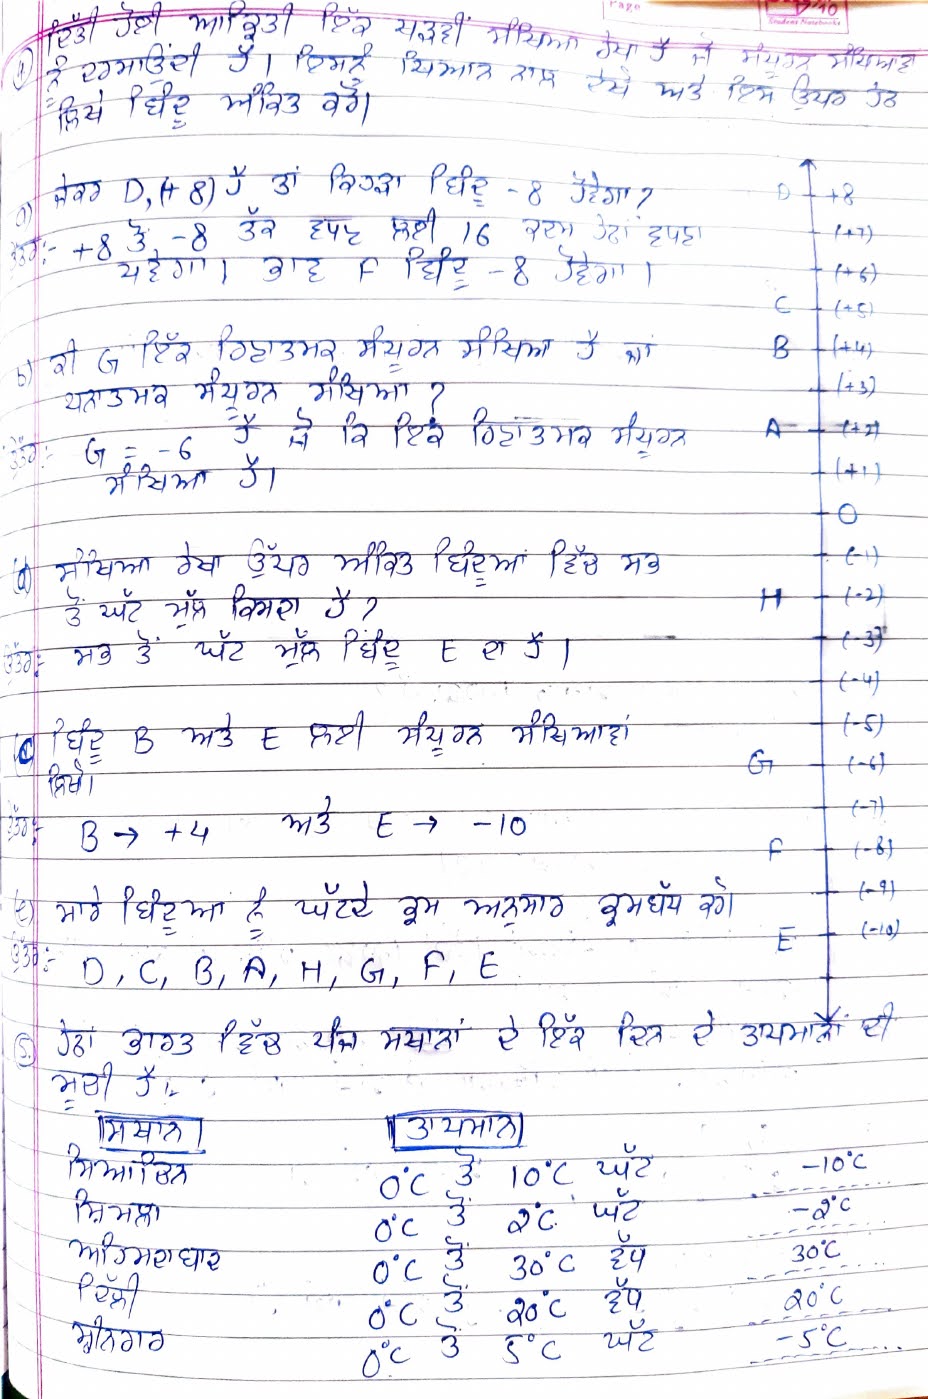 Page
10
Student Notebooks
4) ਦਿੱਤੀ ਹੋਈ ਆਕ੍ਰਿਤੀ ਇੱਕ ਖੜ੍ਹਵੀਂ ਸੰਖਿਆ ਰੇਖਾ ਹੈ ਜੋ ਸੰਪੂਰਨ ਸੰਖਿਆਵਾਂ
ਨੂੰ ਦਰਸਾਉਂਦੀ ਹੈ। ਇਸਨੂੰ ਧਿਆਨ ਨਾਲ ਦੇਖੋ ਅਤੇ ਇਸ ਉੱਪਰ ਹੇਠ
ਲਿਖੇ ਬਿੰਦੂ ਅੰਕਿਤ ਕਰੋ।
a) ਜੇਕਰ D, (+8) ਹੈ ਤਾਂ ਕਿਹੜਾ ਬਿੰਦੂ -8 ਹੋਵੇਗਾ?
ਉੱਤਰ:- +8 ਤੋਂ -8 ਤੱਕ ਵਧਣ ਲਈ 16 ਕਦਮ ਹੇਠਾਂ ਵਧਣਾ
ਪਵੇਗਾ। ਭਾਵ F ਬਿੰਦੂ -8 ਹੋਵੇਗਾ।
b) ਕੀ G ਇੱਕ ਰਿਣਾਤਮਕ ਸੰਪੂਰਨ ਸੰਖਿਆ ਹੈ ਜਾਂ
ਧਨਾਤਮਕ ਸੰਪੂਰਨ ਸੰਖਿਆ?
ਉੱਤਰ:- G = -6 ਹੈ ਜੋ ਕਿ ਇਕ ਰਿਣਾਤਮਕ ਸੰਪੂਰਨ
ਸੰਖਿਆ ਹੈ।
(d) ਸੰਖਿਆ ਰੇਖਾ ਉੱਪਰ ਅੰਕਿਤ ਬਿੰਦੂਆਂ ਵਿੱਚ ਸਭ
ਤੋਂ ਘੱਟ ਮੁੱਲ ਕਿਸਦਾ ਹੈ?
ਉੱਤਰ:- ਸਭ ਤੋਂ ਘੱਟ ਮੁੱਲ ਬਿੰਦੂ E ਦਾ ਹੈ।
(c) ਬਿੰਦੂ B ਅਤੇ E ਲਈ ਸੰਪੂਰਨ ਸੰਖਿਆਵਾਂ
ਲਿਖੋ।
ਉੱਤਰ:- B → +4 ਅਤੇ E → -10
e) ਸਾਰੇ ਬਿੰਦੂਆਂ ਨੂੰ ਘੱਟਦੇ ਕ੍ਰਮ ਅਨੁਸਾਰ ਕ੍ਰਮਬੱਧ ਕਰੋ।
ਉੱਤਰ:- D, C, B, A, H, G, F, E
D +8
(+7)
(+6)
C (+5)
B (+4)
(+3)
A (+2)
(+1)
O
(-1)
H (-2)
(-3)
(-4)
(-5)
G (-6)
(-7)
F (-8)
(-9)
E (-10)
5. ਹੇਠਾਂ ਭਾਰਤ ਵਿੱਚ ਪੰਜ ਸਥਾਨਾਂ ਦੇ ਇੱਕ ਦਿਨ ਦੇ ਤਾਪਮਾਨਾਂ ਦੀ
ਸੂਚੀ ਹੈ:-
ਸਥਾਨ ਤਾਪਮਾਨ
ਸਿਆਚਿਨ 0°C ਤੋਂ 10°C ਘੱਟ -10°C
ਸ਼ਿਮਲਾ 0°C ਤੋਂ 2°C ਘੱਟ -2°C
ਅਹਿਮਦਾਬਾਦ 0°C ਤੋਂ 30°C ਵੱਧ 30°C
ਦਿੱਲੀ 0°C ਤੋਂ 20°C ਵੱਧ 20°C
ਸ਼੍ਰੀਨਗਰ 0°C ਤੋਂ 5°C ਘੱਟ -5°C